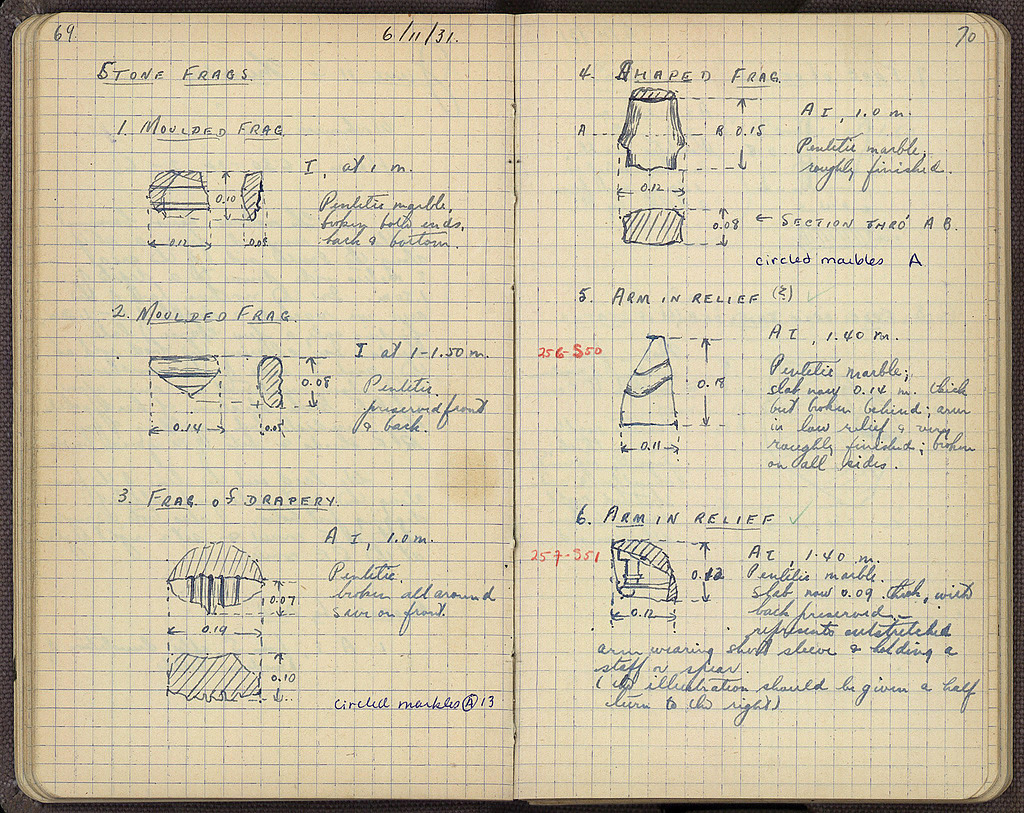 69.
6/11/31.
STONE FRAGS.
1. MOULDED FRAG.
I, at 1 m.
0.10
Pentelic marble,
broken both ends,
back & bottom.
0.12
0.08
2. MOULDED FRAG.
I at 1-1.50 m.
0.08
Pentelic
preserved front
& back.
0.14
0.05
3. FRAG. of DRAPERY.
A I, 1.0 m.
Pentelic.
broken all around
save on front.
0.07
0.19
0.10
circled marbles A 13
70
4. SHAPED FRAG.
A I, 1.0 m.
A
B
0.15
Pentelic marble,
roughly finished.
0.12
0.08
← SECTION THRO' A B.
circled marbles A
5. ARM IN RELIEF (ξ)
256-S50
A I, 1.40 m.
Pentelic marble;
slab now 0.14 m. thick
but broken behind; arm
in low relief & very
roughly finished; broken
on all sides.
0.18
0.11
6. ARM IN RELIEF ✓
257-S51
A I, 1.40 m.
Pentelic marble.
Slab now 0.09 thick, with
back preserved.
represents outstretched
0.12
arm wearing short sleeve & holding a
staff or spear.
(the illustration should be given a half
turn to the right)